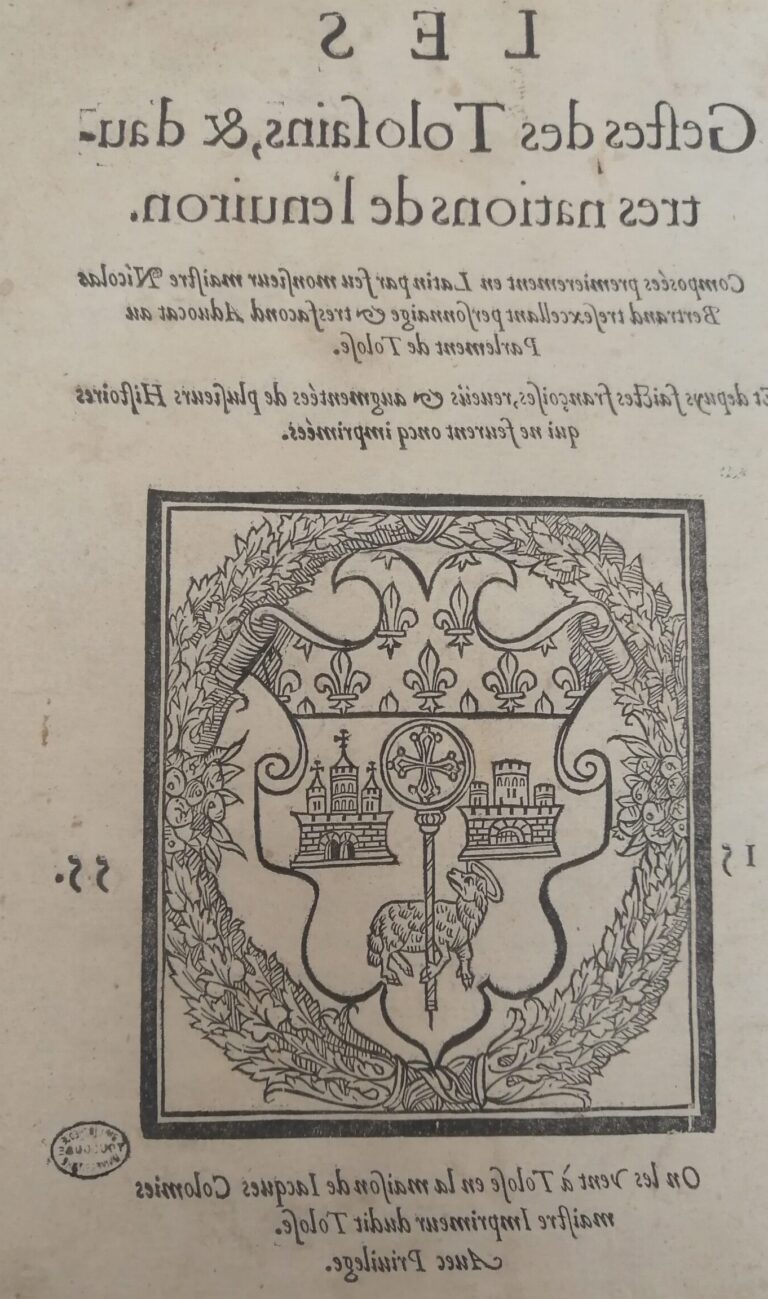 LES
Gestes des Tolosains, & d'au-
tres nations de l'enuiron.
Composées premierement en Latin par feu monsieur maistre Nicolas
Bertrand tresexcellant personnaige & tresfacond Aduocat au
Parlement de Tolose.
Et depuys faictes françoises, reueües & augmentées de plusieurs Histoires
qui ne feurent oncq imprimées.
15 55.
On les vent à Tolose en la maison de Iacques Colomies
maistre Imprimeur dudit Tolose.
Auec Priuilege.